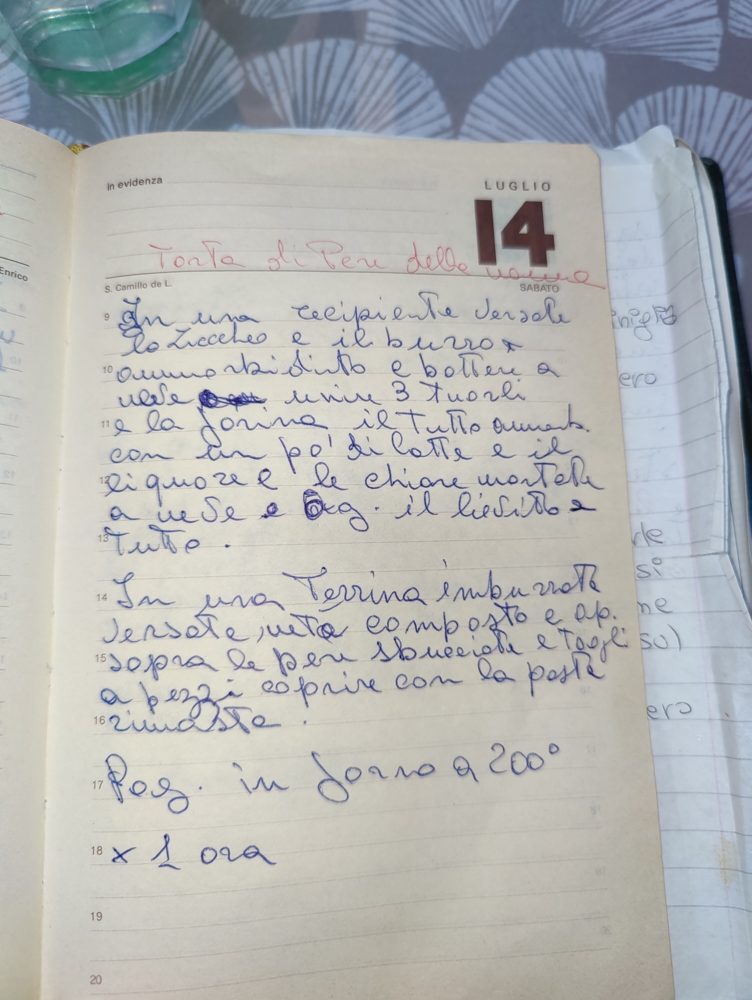 In evidenza
LUGLIO
14
Torta di Pere della nonna
Enrico
S. Camillo de L.
SABATO
9 In una recipiente versate
lo Zucchero e il burro
10 ammorbidito e battere a
neve unire 3 tuorli
11 e la farina il tutto ammorb.
con un po' di latte e il
12 liquore e le chiare montate
a neve e ag. il lievito e
13 tutto.
14 In una Terrina imburrata
versate metà composto e ap.
15 sopra le pere sbucciate e tagli
a pezzi coprire con la pasta
16 rimasta.
17 in forno a 200°
18 x 1 ora
19
20
ero
si
ne
so)
ero